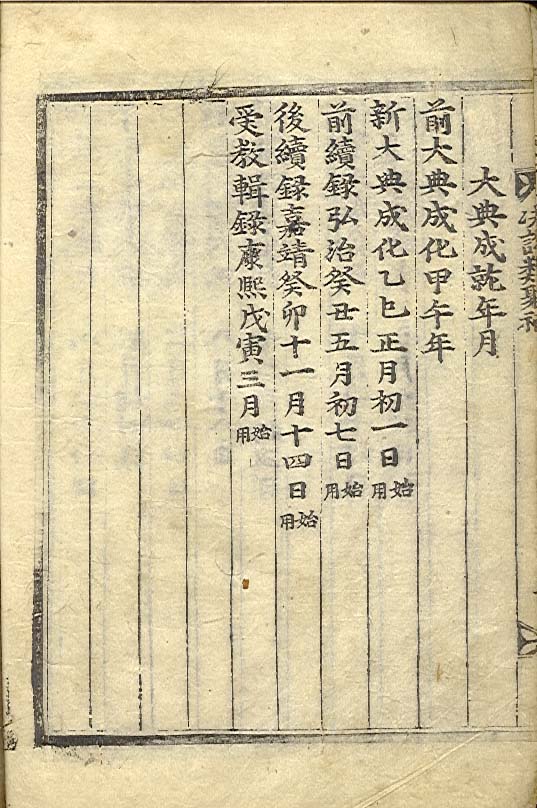 決訟類聚補
大典成訖年月
前大典成化甲午年
新大典成化乙巳正月初一日始用
前續録弘治癸丑五月初七日始用
後續録嘉靖癸卯十一月十四日始用
受教輯録康熙戊寅三月始用